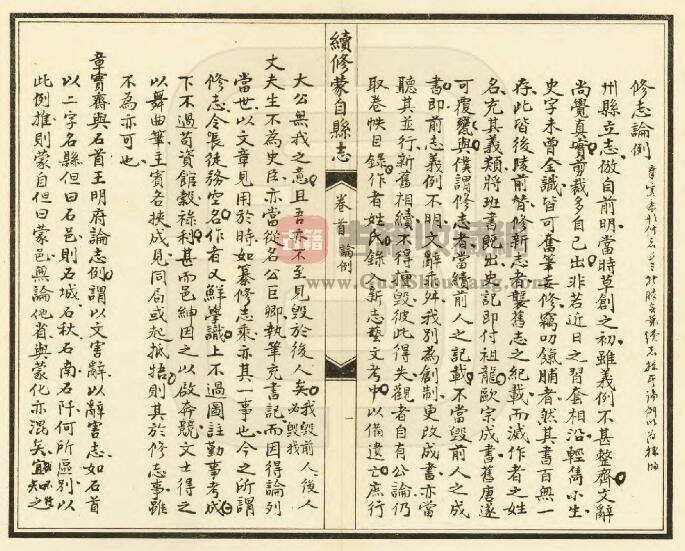 修志論例
州縣立志倣自前明當時草創之初雖義例不甚整齊文辭
尚覺真實剪裁多自己出非若近日之習套相沿輕雋小生
史字未曾全識皆可奮筆妄修竊叨餼脯者然其書百無一
存此皆後陵前替修新志者襲舊志之紀載而滅作者之姓
名充其義類將班書既出史記即付祖龍歐宗成書舊唐遂
可覆甕與僕謂修志者當續前人之記載不當毀前人之成
書即前志義例不明文辭乖舛我別為創制更改成書亦當
聽其並行新舊相續不得擅毀彼此得失觀者自有公論仍
取卷帙目錄作者姓氏錄入新志藝文考中以備遺亡庶行
續修蒙自縣志
卷首 論例
一
大公無我之意且吾亦不至見毀於後人矣我毀前人後人必毀我
丈夫生不為史臣亦當從名公巨卿執筆充書記而因得論列
當世以文章見用於時如纂修志乘亦其一事也今之所謂
修志令長徒務空名作者又鮮學識上不過圖註勤事考成
下不過苟資館穀祿利甚而邑紳因之以啟奔競文士得之
以舞曲筆主賓各挾成見同局或起抵牾則其於修志事雖
不為亦可也
章實齋與石首王明府論志例謂以文害辭以辭害志如石首
以二字名縣但曰石邑則石城石秋石南石阡何所區別以
此例推則蒙自但曰蒙邑無論他省與蒙化亦混矣知之
古籍收藏網
www.GujiShoucang.com